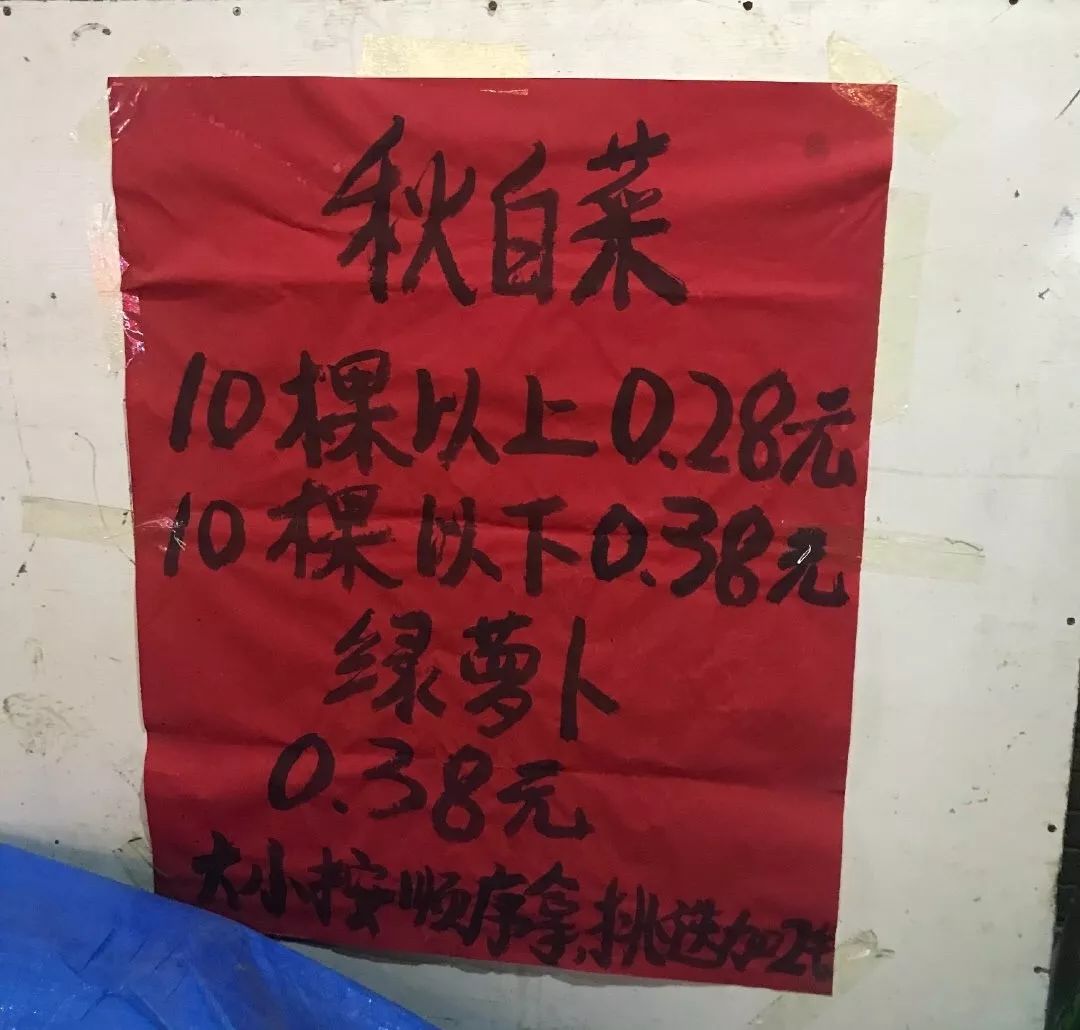 秋白菜
10棵以上0.28元
10棵以下0.38元
绿萝卜
0.38元
大小按顺序拿,挑选加2毛